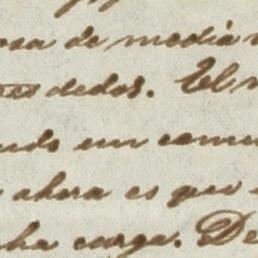 osa de media
res dedos. El
ndo un comu
ahora es que
cha carga. De